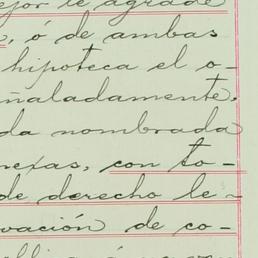 ejor le agrade
, ó de ambas
hipoteca el o-
ñaladamente,
da nombrada
nexas, con to-
de derecho le-
vación de co-